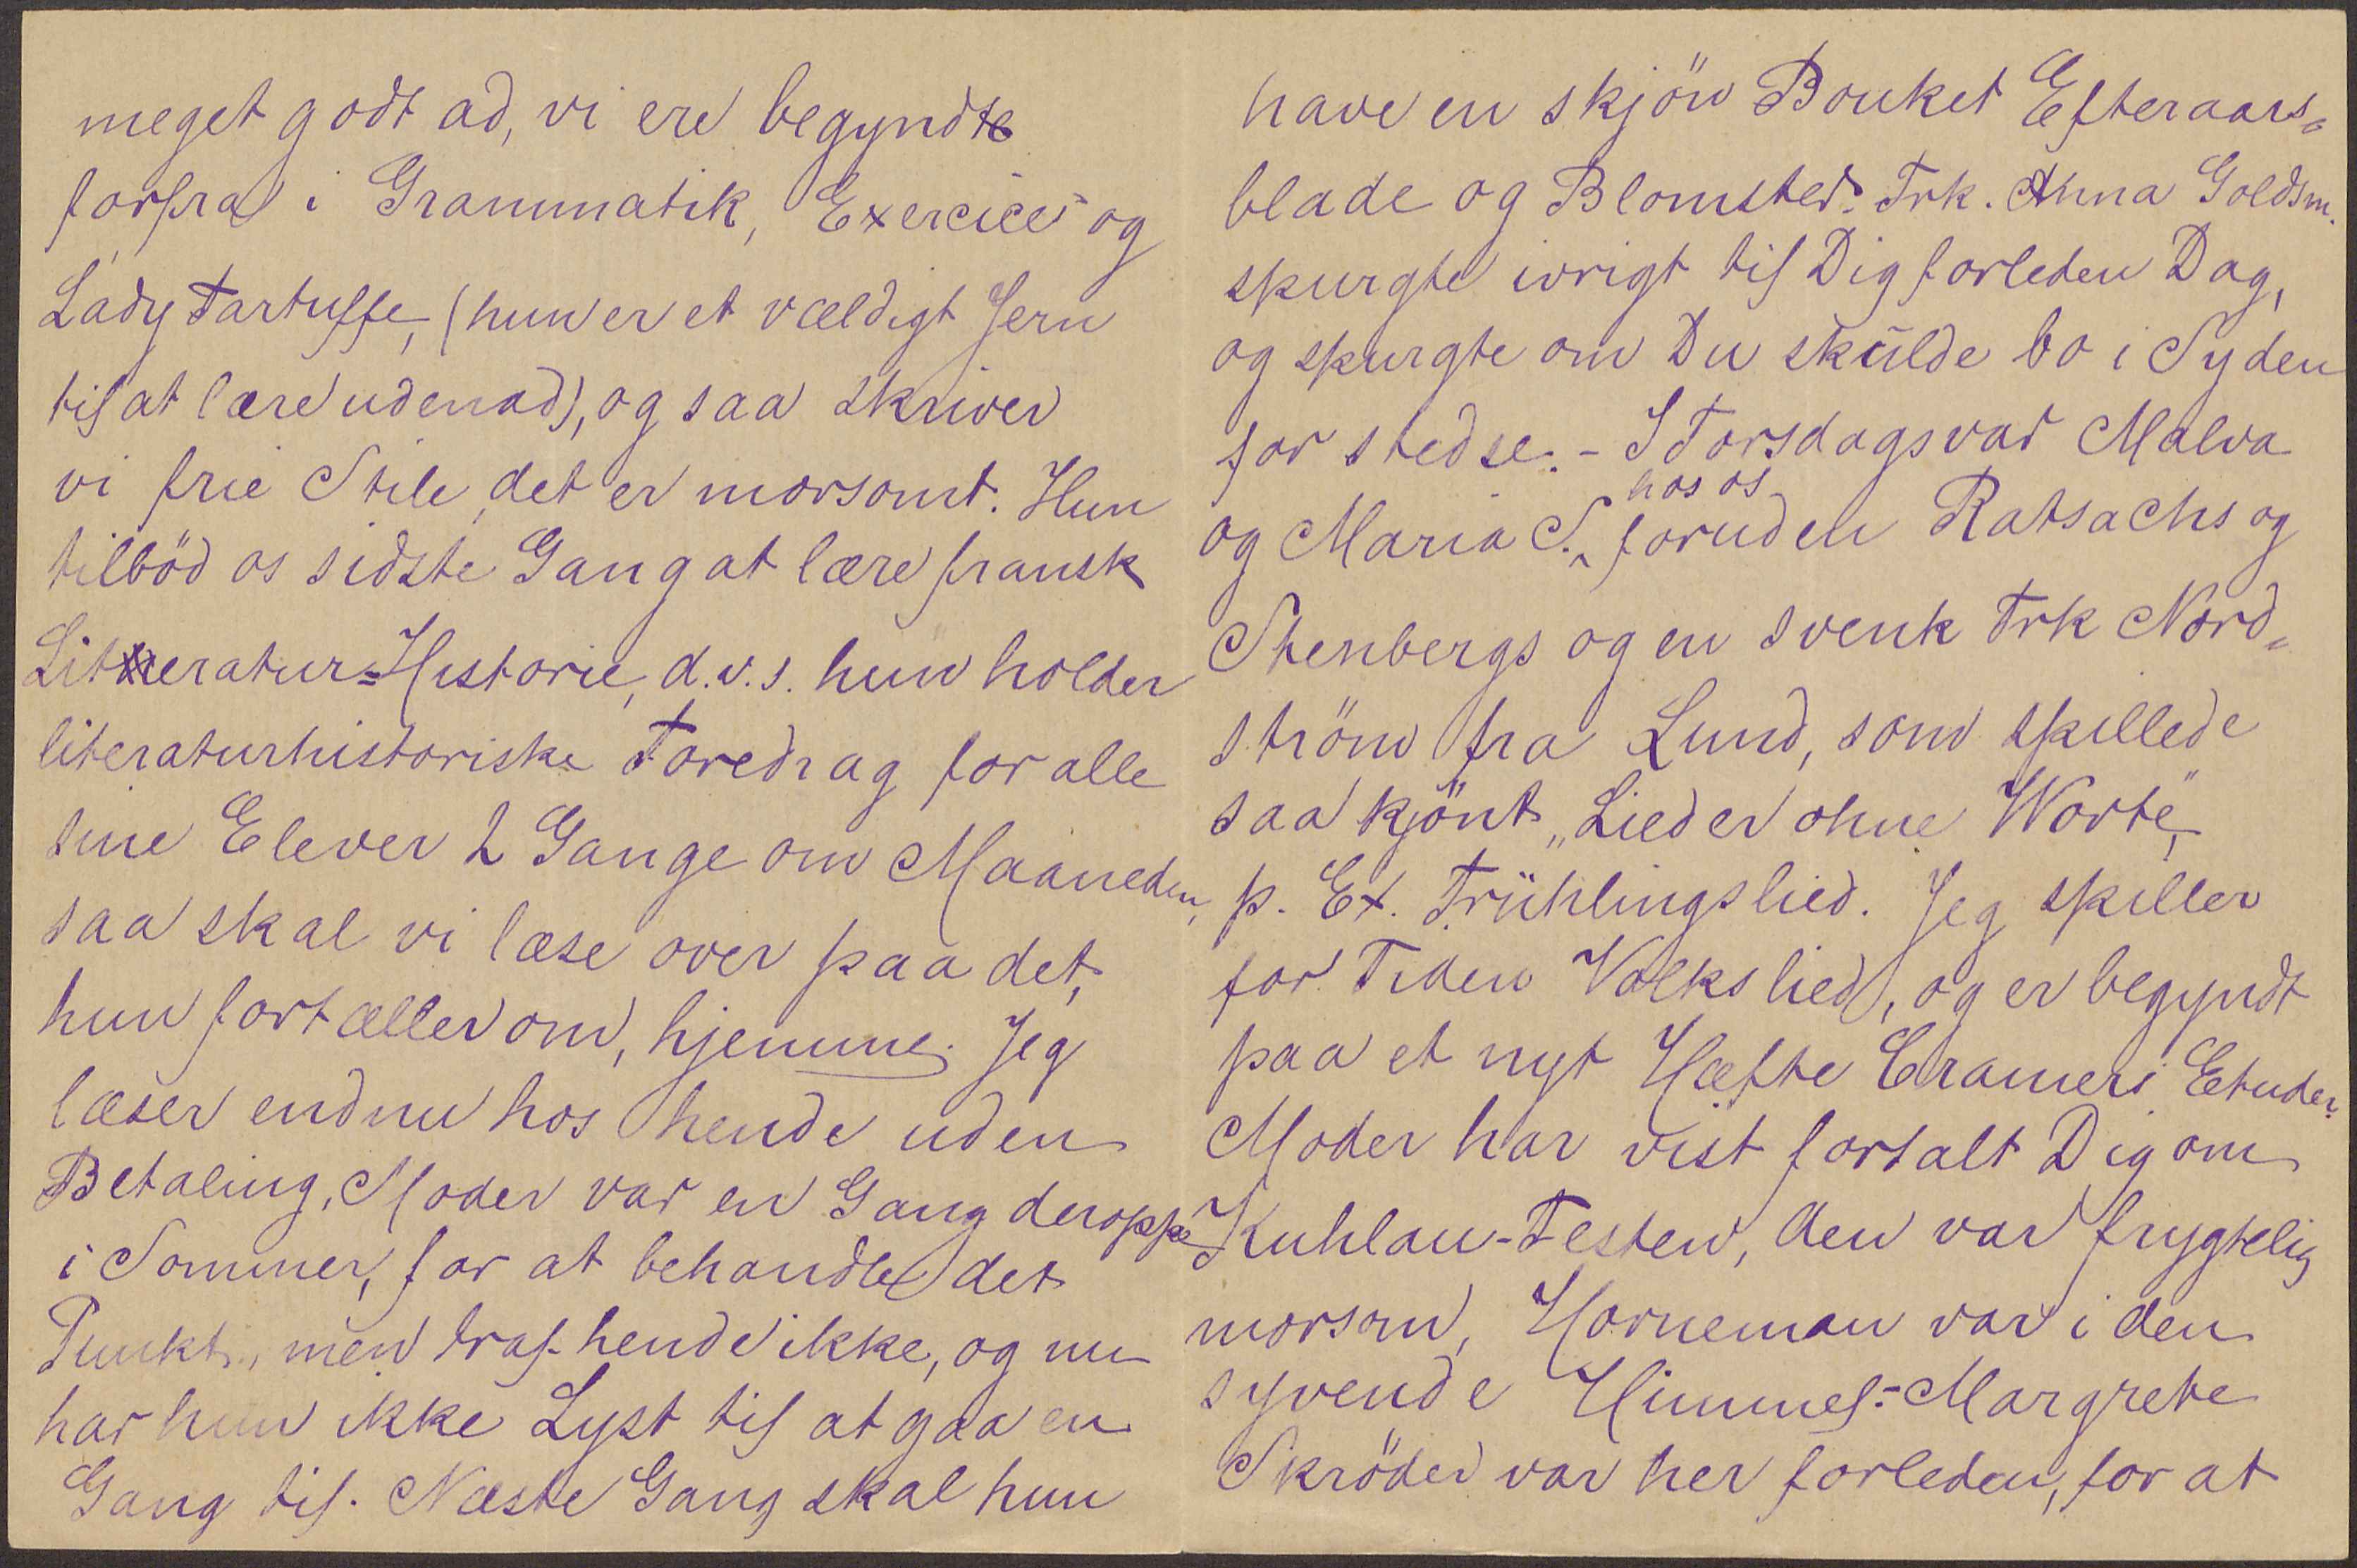 meget godt ad, vi ere begyndte
forfra i Grammatik, Exercice og
Lady Tartuffe, (hun er et vældigt Jern
til at lære udenad), og saa skriver
vi frie Stile, det er morsomt. Hun
tilbød os sidste Gang at lære fransk
Literatur-Historie, d.v.s. hun holder
literaturhistoriske Foredrag for alle
sine Elever 2 Gange om Maaneden,
saa skal vi læse over paa det,
hun fortæller om, hjemme. Jeg
læser endnu hos hende uden
Betaling, Moder var en Gang deroppe
i Sommer, for at behandle det
Punkt, men traf hende ikke, og nu
har hun ikke Lyst til at gaa en
Gang til. Næste Gang skal hun
have en skjön Bouket Efteraars-
blade og Blomster. Frk. Anna Goldsm.
spurgte ivrigt til Dig forleden Dag,
og spurgte om Du skulde bo i Syden
for stedse. - I Torsdags var Malva
og Maria S. hos os foruden Ratsachs og
Stenbergs og en svensk Frk Nord-
ström fra Lund, som spillede
saa kjönt „Lieder ohne Worte",
p. Ex. Frühlingslied. Jeg spiller
for Tiden Volkslied, og er begyndt
paa et nyt Hæfte Cramers Etuder.
Moder har vist fortalt Dig om
Kuhlau-Festen, den var frygtelig
morsom, Horneman var i den
syvende Himmel. - Margrete
Skröder var her forleden, for at